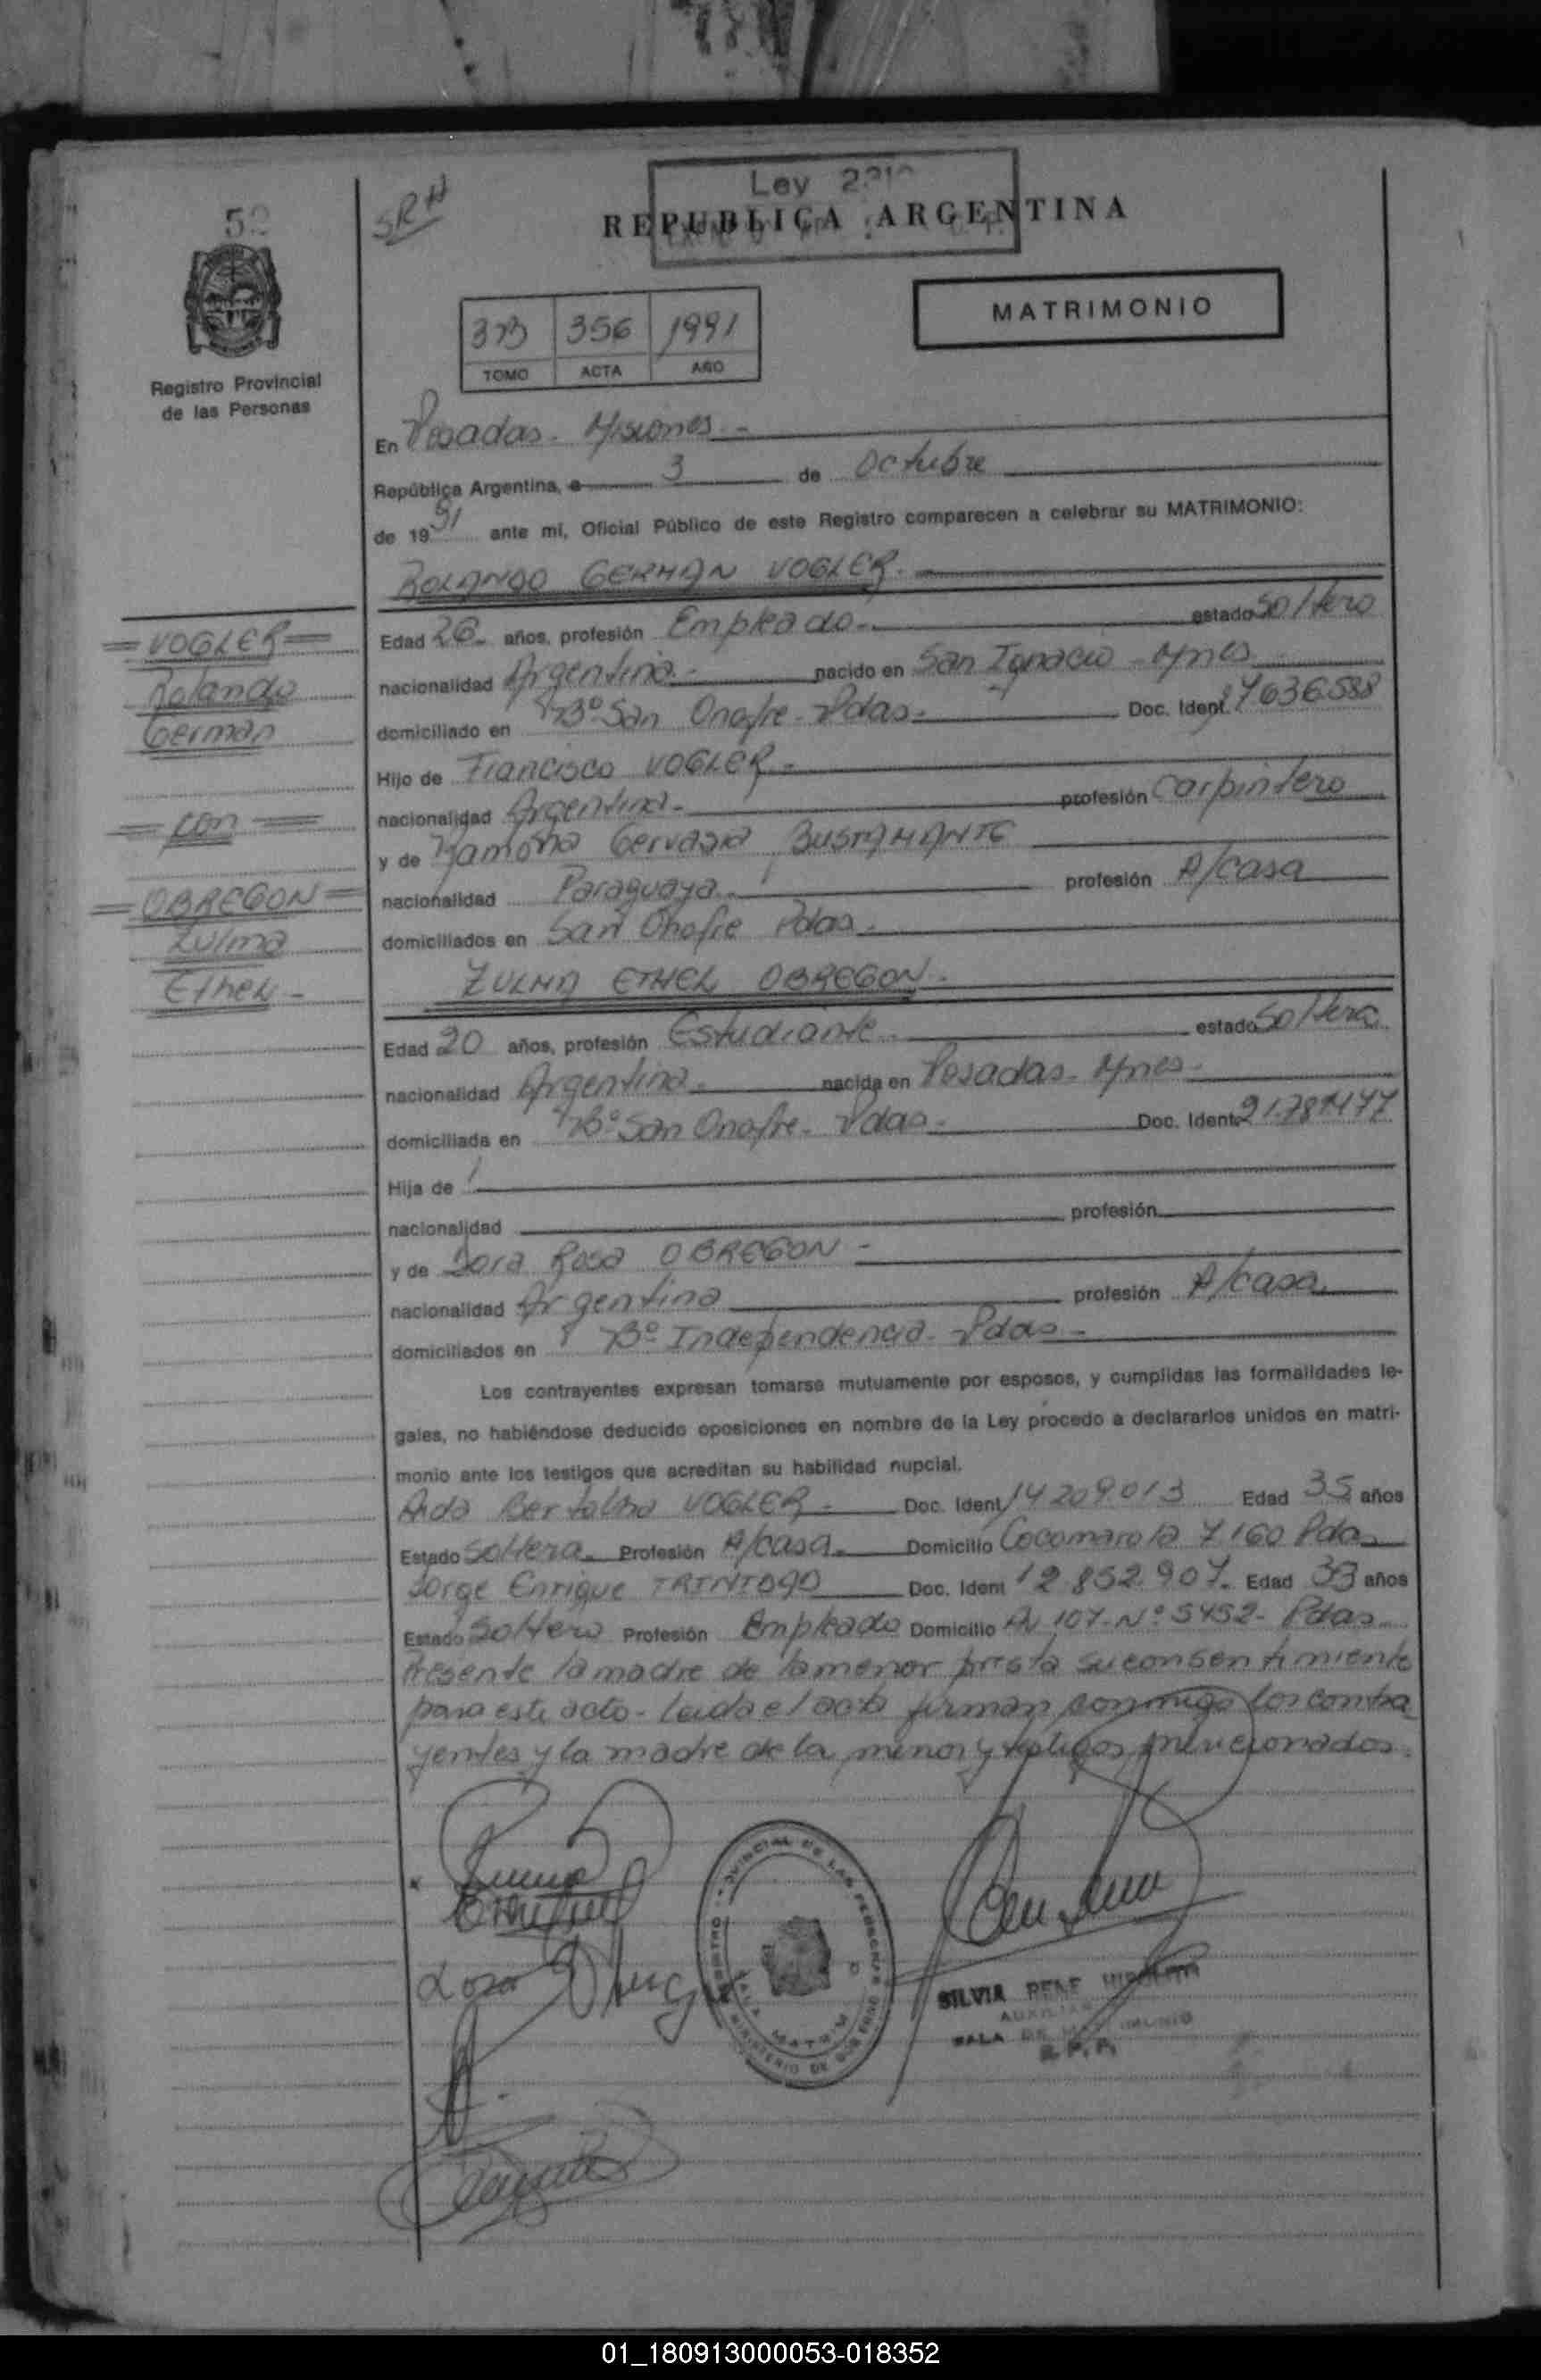 Ley
REPUBLICA ARGENTINA
SRH
MATRIMONIO
356 1991
TOMO ACTA AÑO
Registro Provincial
de las Personas
En Posadas - Misiones -
República Argentina, a 3 de Octubre
de 1991 ante mí, Oficial Público de este Registro comparecen a celebrar su MATRIMONIO:
ROLANDO GERMAN VOGLER.
= VOGLER =
Rolando
German
= con =
= OBREGON =
Zulma
Ethel -
Edad 26 - años, profesión Empleado - estado Soltero
nacionalidad Argentina - nacido en San Ignacio - Mnes
domiciliado en Bº San Onofre - Pdas - Doc. Ident. 17.636.588
Hijo de Francisco VOGLER -
nacionalidad Argentina - profesión Carpintero
y de Ramona Gervasia BUSTAMANTE
nacionalidad Paraguaya - profesión A/casa
domiciliados en San Onofre Pdas -
ZULMA ETHEL OBREGON -
Edad 20 años, profesión Estudiante - estado Soltera
nacionalidad Argentina - nacida en Posadas - Mnes -
domiciliada en Bº San Onofre - Pdas - Doc. Ident.
Hija de
nacionalidad profesión
y de Dora Rosa OBREGON -
nacionalidad Argentina profesión A/casa
domiciliados en Bº Independencia - Pdas -
Los contrayentes expresan tomarse mutuamente por esposos, y cumplidas las formalidades le-
gales, no habiéndose deducido oposiciones en nombre de la Ley procedo a declararlos unidos en matri-
monio ante los testigos que acreditan su habilidad nupcial.
Aida VOGLER - Doc. Ident 14209.013 Edad 35 años
Estado Soltera - Profesión A/casa - Domicilio Cocomarola 7160 Pdas
Jorge Enrique Doc. Ident 12.852.907 - Edad 33 años
Estado Soltero Profesión Empleado Domicilio Av 107 - Nº 5452 - Pdas
Presente la madre de la menor presta su consentimiento
para este acto - leida el acta firman conmigo los contra
yentes y la madre de la menor y testigos mencionados.
SILVIA
SALA
R.P.P.
01_180913000053-018352